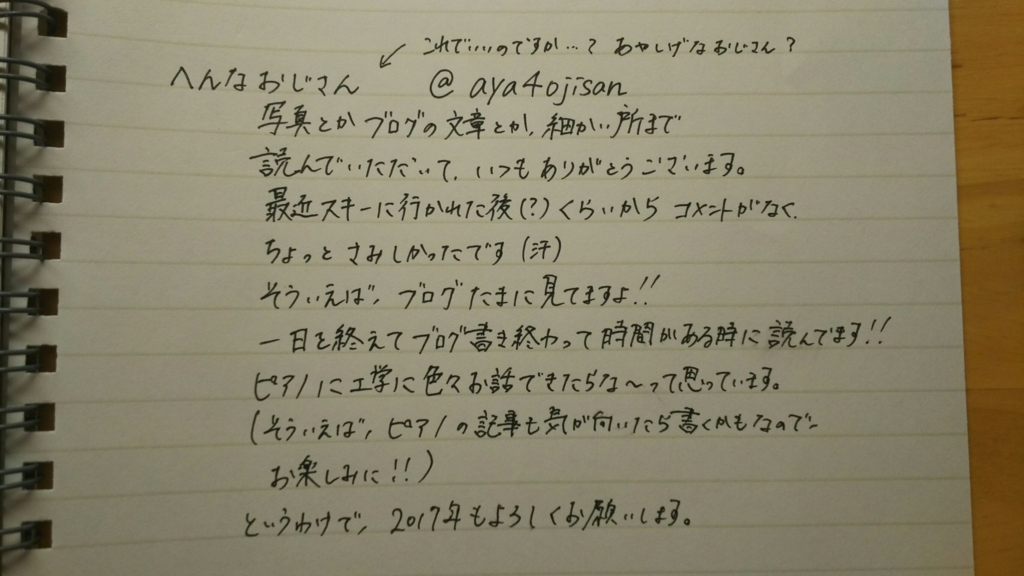 これでいいのですか…? あやしげなおじさん?
へんなおじさん @aya4ojisan
写真とかブログの文章とか、細かい所まで
読んでいただいて、いつもありがとうございます。
最近スキーに行かれた後(?)くらいからコメントがなく、
ちょっとさみしかったです(汗)
そういえば、ブログたまに見てますよ!!
一日を終えてブログ書き終わって時間がある時に読んでます!!
ピアノに工学に色々お話できたらな〜って思っています。
(そういえば、ピアノの記事も気が向いたら書くかもなので、
お楽しみに!!)
というわけで、2017年もよろしくお願いします。